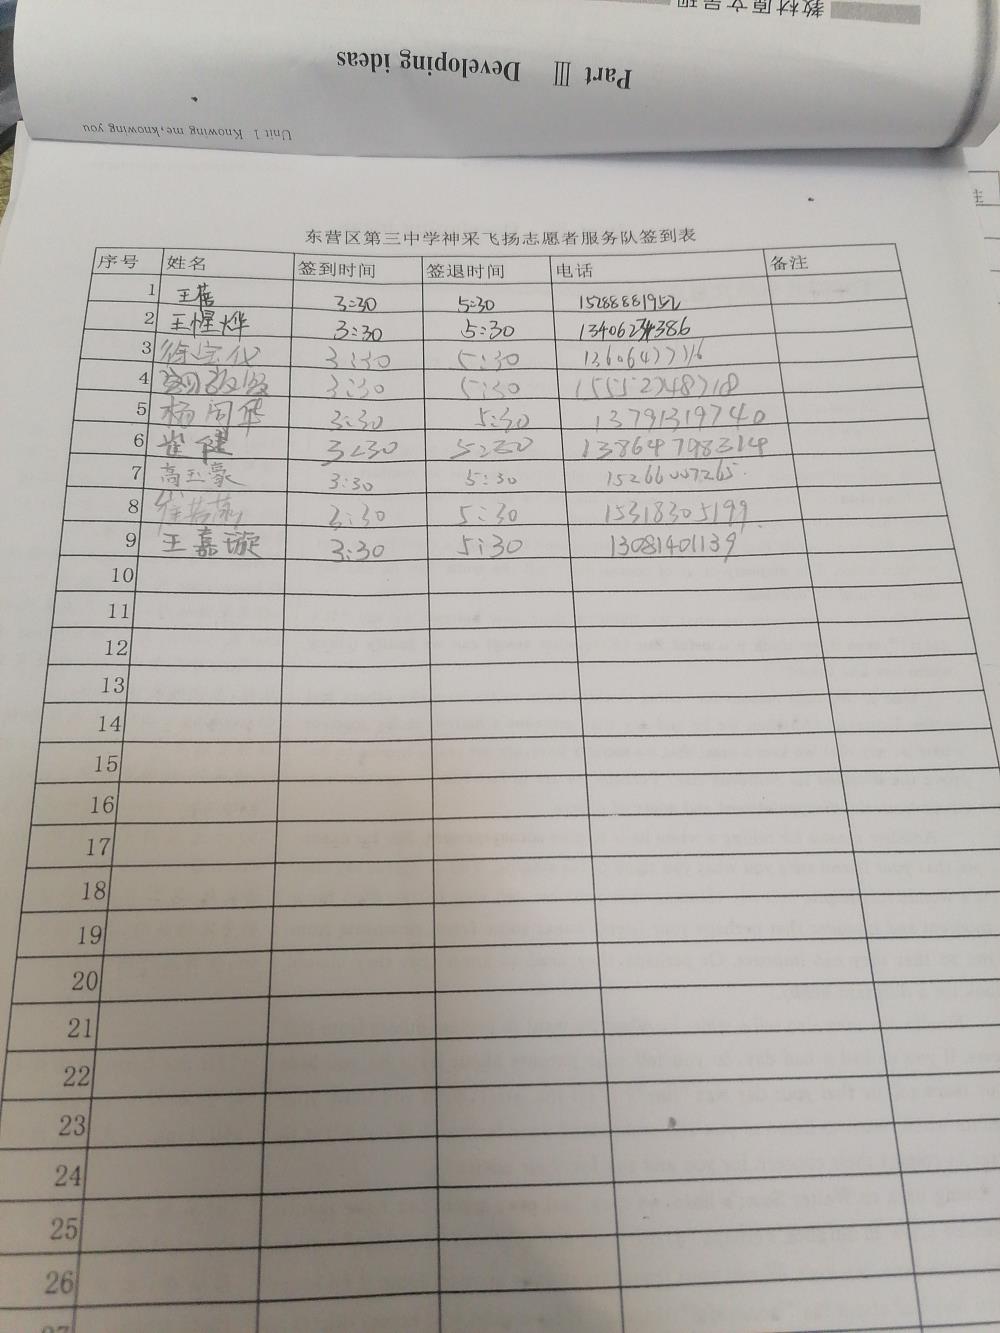 教材原文呈现
Part Ⅲ Developing ideas
Unit 1 Knowing me, knowing you
东营区第三中学神采飞扬志愿者服务队签到表
序号 姓名 签到时间 签退时间 电话 备注
1 王蓓 3:30 5:30 15288881952
2 王惺烨 3:30 5:30 13406274386
3 徐宝化 3:30 5:30 13606477716
4 3:30 5:30 15552748718
5 杨闰华 3:30 5:30 13791319740
6 崔健 3:30 5:30 13864798314
7 高玉豪 3:30 5:30 15266007265
8 3:30 5:30 15318305199
9 王嘉璇 3:30 5:30 13081401139
10
11
12
13
14
15
16
17
18
19
20
21
22
23
24
25
26
27